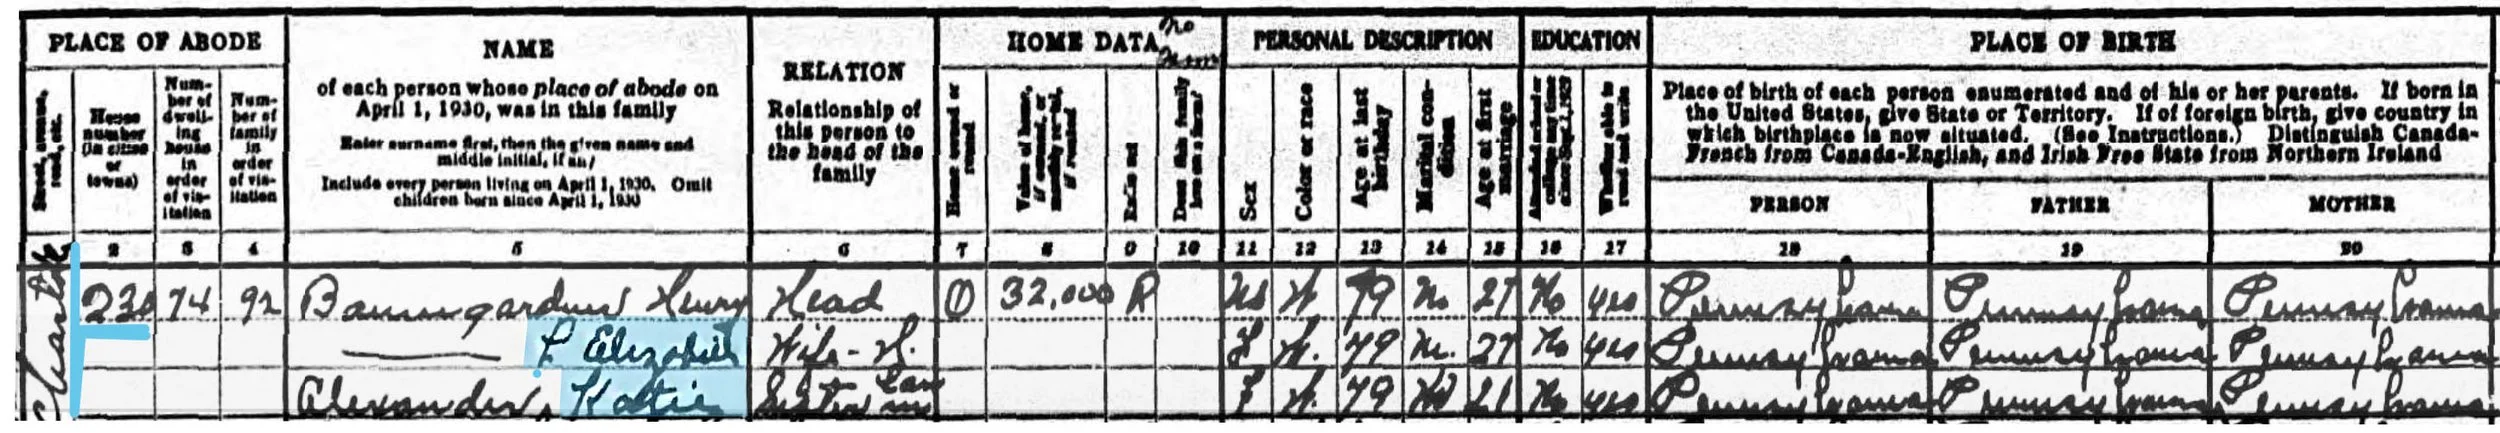 PLACE OF ABODE
NAME
of each person whose place of abode on
April 1, 1930, was in this family
Enter surname first, then the given name and
middle initial, if any
Include every person living on April 1, 1930. Omit
children born since April 1, 1930
RELATION
Relationship of
this person to
the head of the
family
HOME DATA
no
PERSONAL DESCRIPTION
EDUCATION
PLACE OF BIRTH
Place of birth of each person enumerated and of his or her parents. If born in
the United States, give State or Territory. If of foreign birth, give country in
which birthplace is now situated. (See Instructions.) Distinguish Canada-
French from Canada-English, and Irish Free State from Northern Ireland
Street, avenue,
road, etc.
House
number
(in cities
or
towns)
Num-
ber of
dwell-
ing
house
in
order
of vis-
itation
Num-
ber of
family
in
order
of vis-
itation
Home owned or
rented
Value of home,
if owned, or
monthly rental,
if rented
Radio set
Does this family
live on a farm?
Sex
Color or race
Age at last
birthday
Marital con-
dition
Age at first
marriage
Attended school or
college any time
since Sept. 1, 1929
Whether able to
read and write
PERSON
FATHER
MOTHER
2 3 4 5 6 7 8 9 10 11 12 13 14 15 16 17 18 19 20
230 74 92 Baumgardner Henry Head O 32,000 R M W. 79 M 27 No yes Pennsylvania Pennsylvania Pennsylvania
L Elizabeth Wife-H. F W. 79 M. 27 No yes Pennsylvania Pennsylvania Pennsylvania
Alexander, Katie Sister in Law F W. 79 Wd 21 No yes Pennsylvania Pennsylvania Pennsylvania